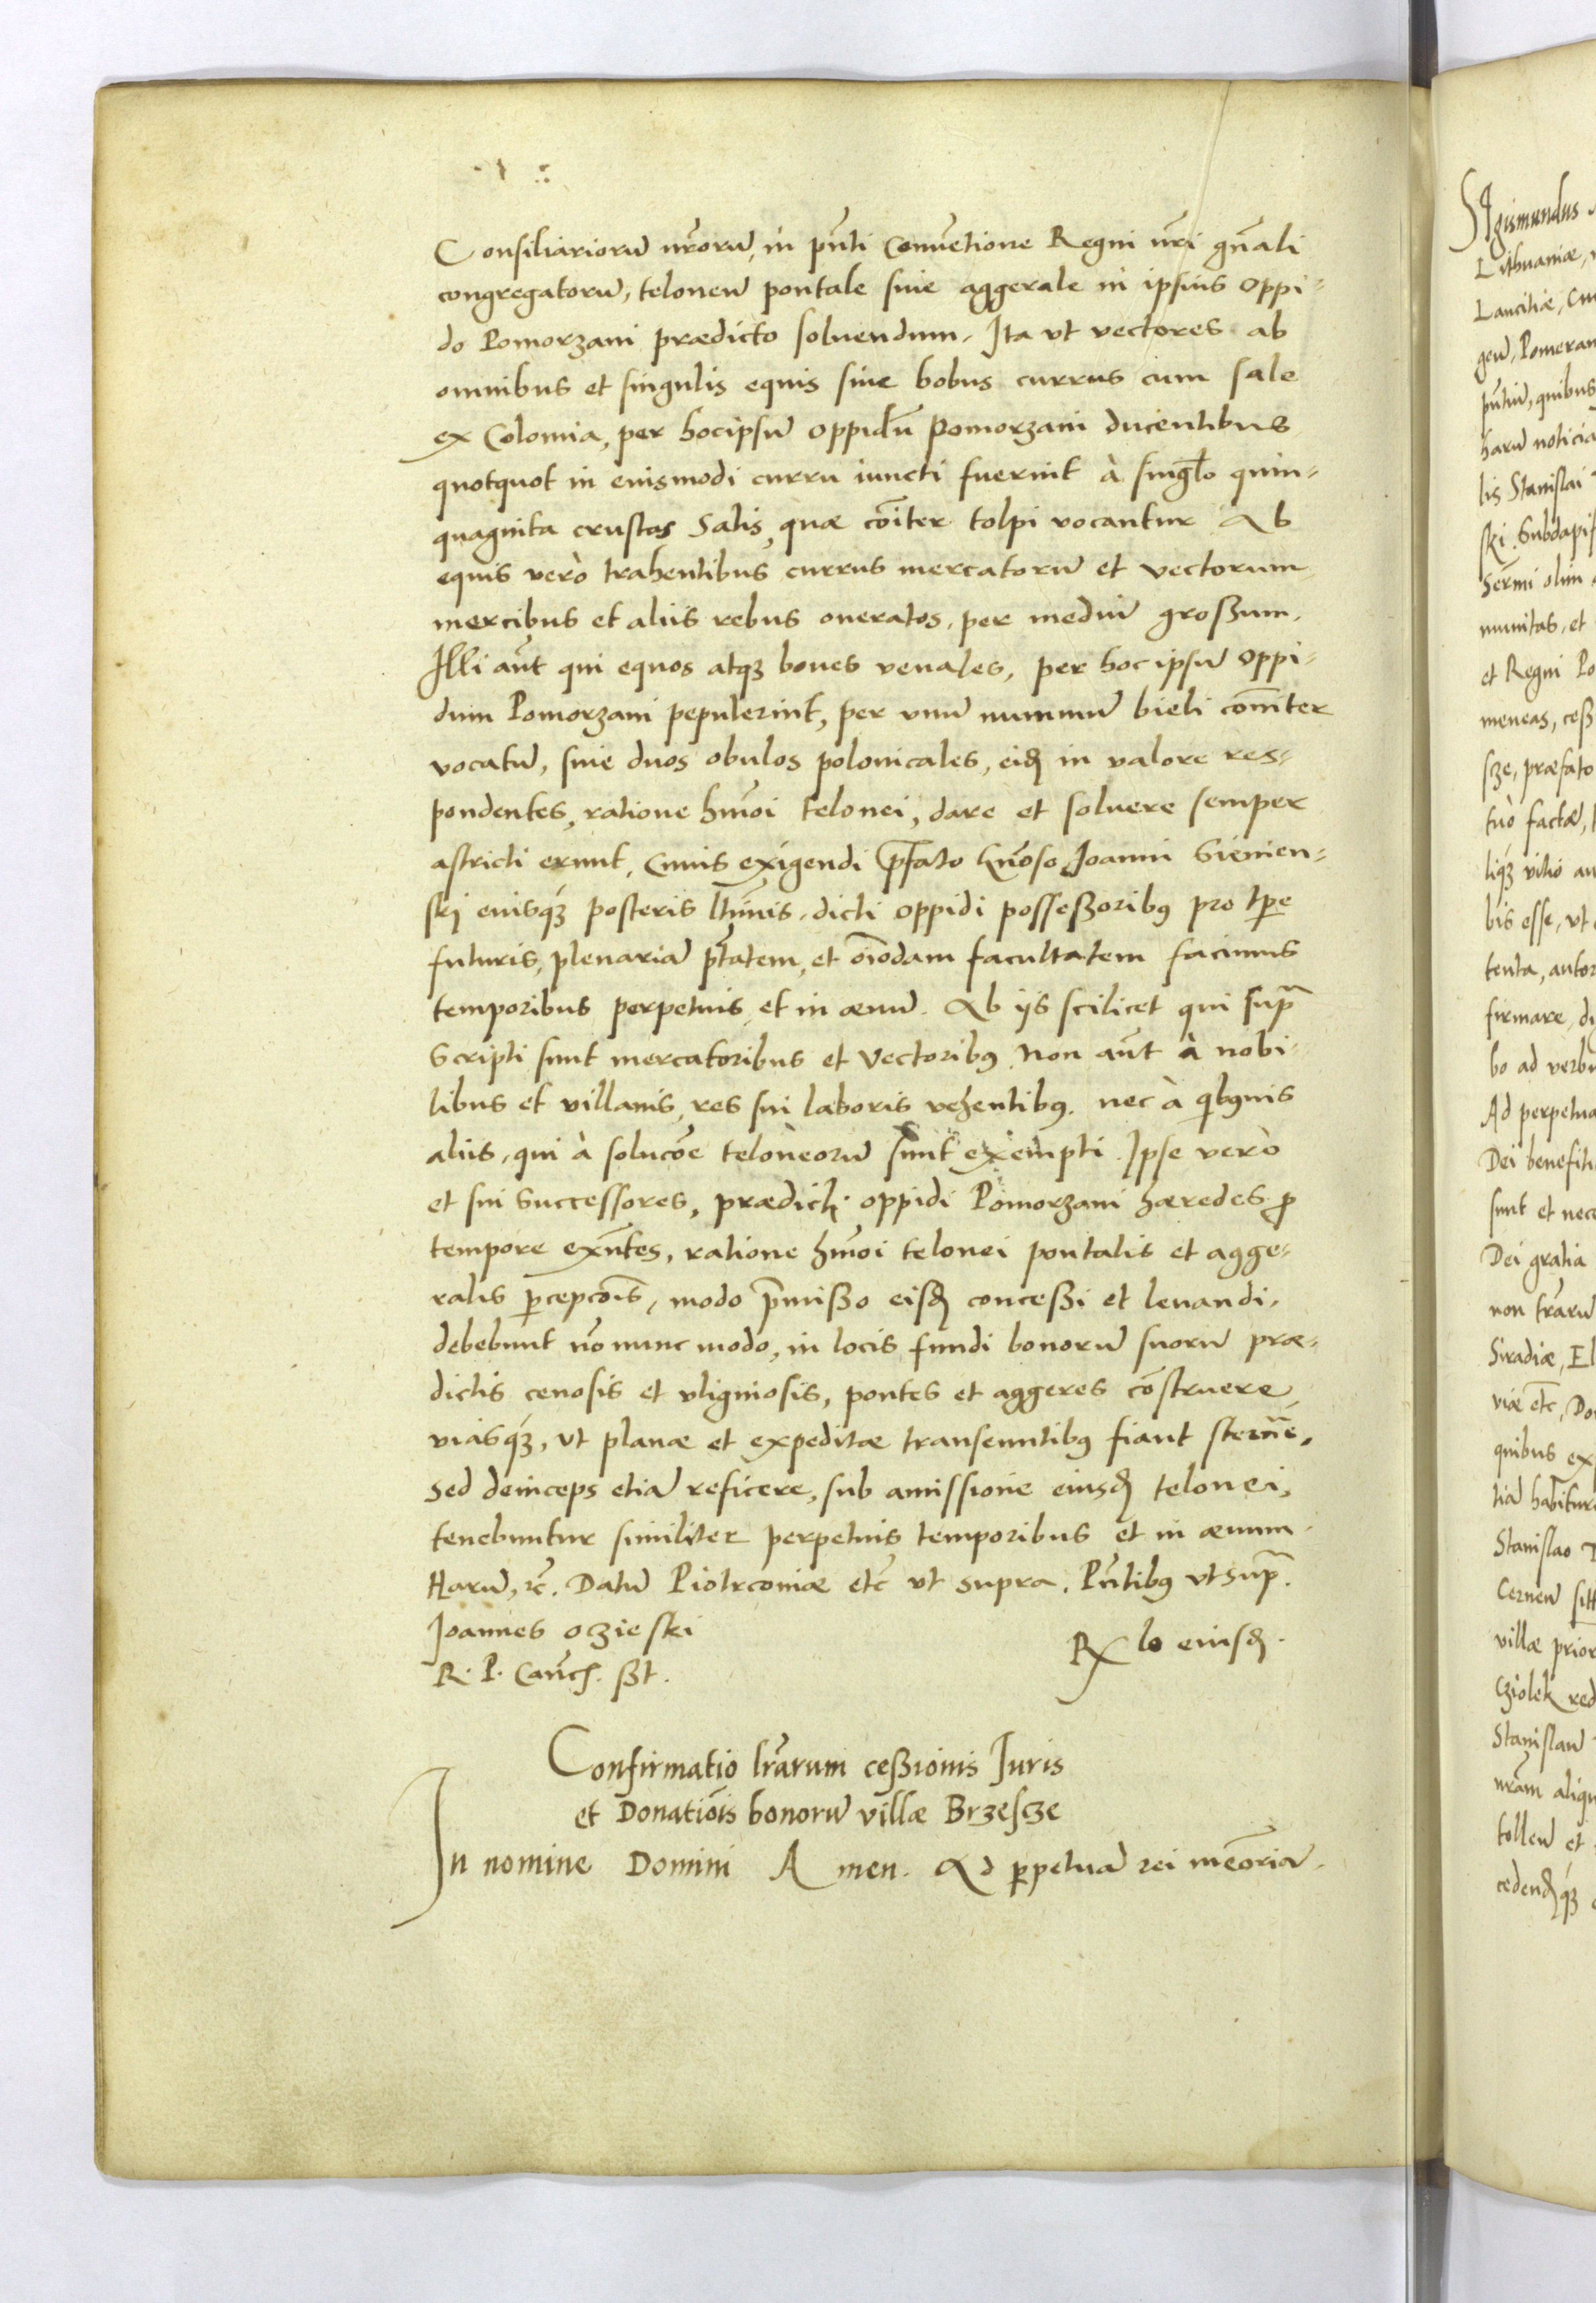 Consiliariorũ nr̃orũ, in pn̄ti Conuẽtione Regni nr̃i gn̄ali
congregatorũ, teloneũ pontale siue aggerale in ipsius oppi-
do Pomorzani prædicto soluendum. Ita vt vectores ab
omnibus et singulis equis siue bobus currus cum sale
ex Colomia, per hoc ipsũ oppidũ Pomorzani ducentibus
quotquot in eiusmodi curru iuncti fuerint à singl̃o quin-
quaginta crustas Salis, quæ cõiter tolpi vocantur. Ab
equis verò trahentibus currus mercatorũ et vectorum
mercibus et aliis rebus oneratos, per mediũ großum.
Illi aũt qui equos atqꝫ boues venales, per hoc ipsũ oppi-
dum Pomorzani pepulerint, per vnũ nummũ bieli com̃iter
vocatũ, siue duos obulos polonicales, eidꝫ in valore res-
pondentes, ratione hm̃oi telonei, dare et soluere semper
astricti erunt, Cuius exigendi p̃fato gñoso Joanni Sienien-
ski eiusqꝫ posteris ltĩmis, dicti oppidi posseßoribꝰ pro tp̃e
futuris, plenariã pt̃atem, et oĩodam facultatem facimus
temporibus perpetuis et in æuũ. Ab ijs scilicet qui sup̃
Scripti sunt mercatoribus et Vectoribꝰ. Non aũt à nobi-
libus et villanis, res sui laboris vehentibꝰ. nec à qibꝰuis
aliis, qui à solucõe teloneorũ sunt exempti. Ipse verò
et sui Successores, prædicti oppidi Pomorzani hæredes ꝓ
tempore exñtes, ratione hm̃oi telonei pontalis et agge-
ralis ꝑcepcõis, modo p̃mißo eisdꝫ conceßi et leuandi,
debebunt nõ nunc modo, in locis fundi bonorũ suorũ præ-
dictis cenosis et vliginosis, pontes et aggeres cõstruere,
viasqꝫ, vt planæ et expeditæ transeuntibꝰ fiant sterñe,
Sed deinceps etiã reficere, sub amissione eiusdꝫ telonei,
tenebuntur similiter perpetuis temporibus et in æuum.
Harũ, ꝛc̃. Datũ Piotrconiæ etc̃ vt supra. Pñtibꝰ vt sup̃.
Joannes oczieski
R. P. Canc̃. ßt.
Rx lo eiusdꝫ.
Confirmatio lr̃arum ceßionis Iuris
et Donatiõis bonorũ villæ Brzescze
In nomine Domini Amen. Ad ꝑpetuã rei memõriã.
Sigismundus
Lithuaniæ,
Lanciciæ, Cui
geũ, Pomeran
pñtiũ, quibus
harũ noticia
lis Stanislai
ski Subdapif
Serm̃i olim
munitas, et
et Regni Po
meneas, ceß
scze, præfato
tuò factæ,
liqꝫ vitio au
bis esse, vt
tenta, autor
firmare, di
bo ad verbũ
Ad perpetua
Dei benefiti
sunt et nece
Dei gratia
non tr̃arũ
Siradiæ, El
viæ etc̃, Do
quibus ex
tiã habitur
Stanislao
Cerneũ sitt
villæ prior
Cziolek red
Stanislaũ
nr̃am aliqu
tolleũ et
cedendꝫqꝫ